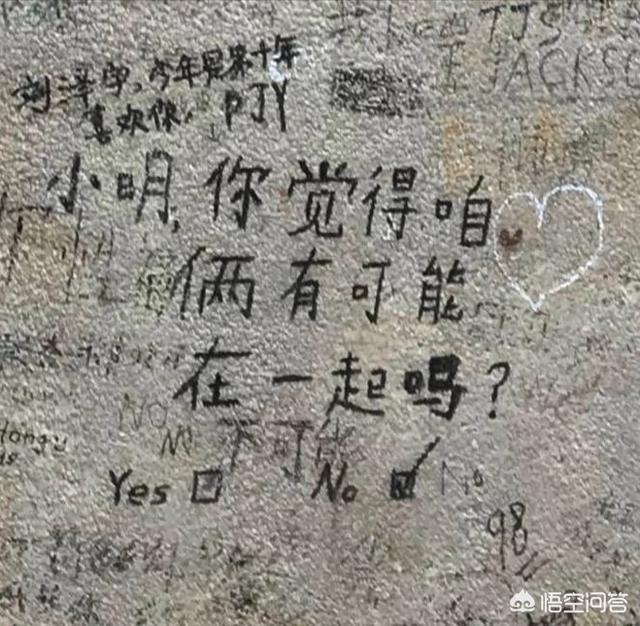 TJS
JACKSO
刘泽宇,今年是第十年
喜欢你, PJY
小明,你觉得咱
俩有可能
在一起吗?
NO
NO 不可能
Yes No No
98
悟空问答